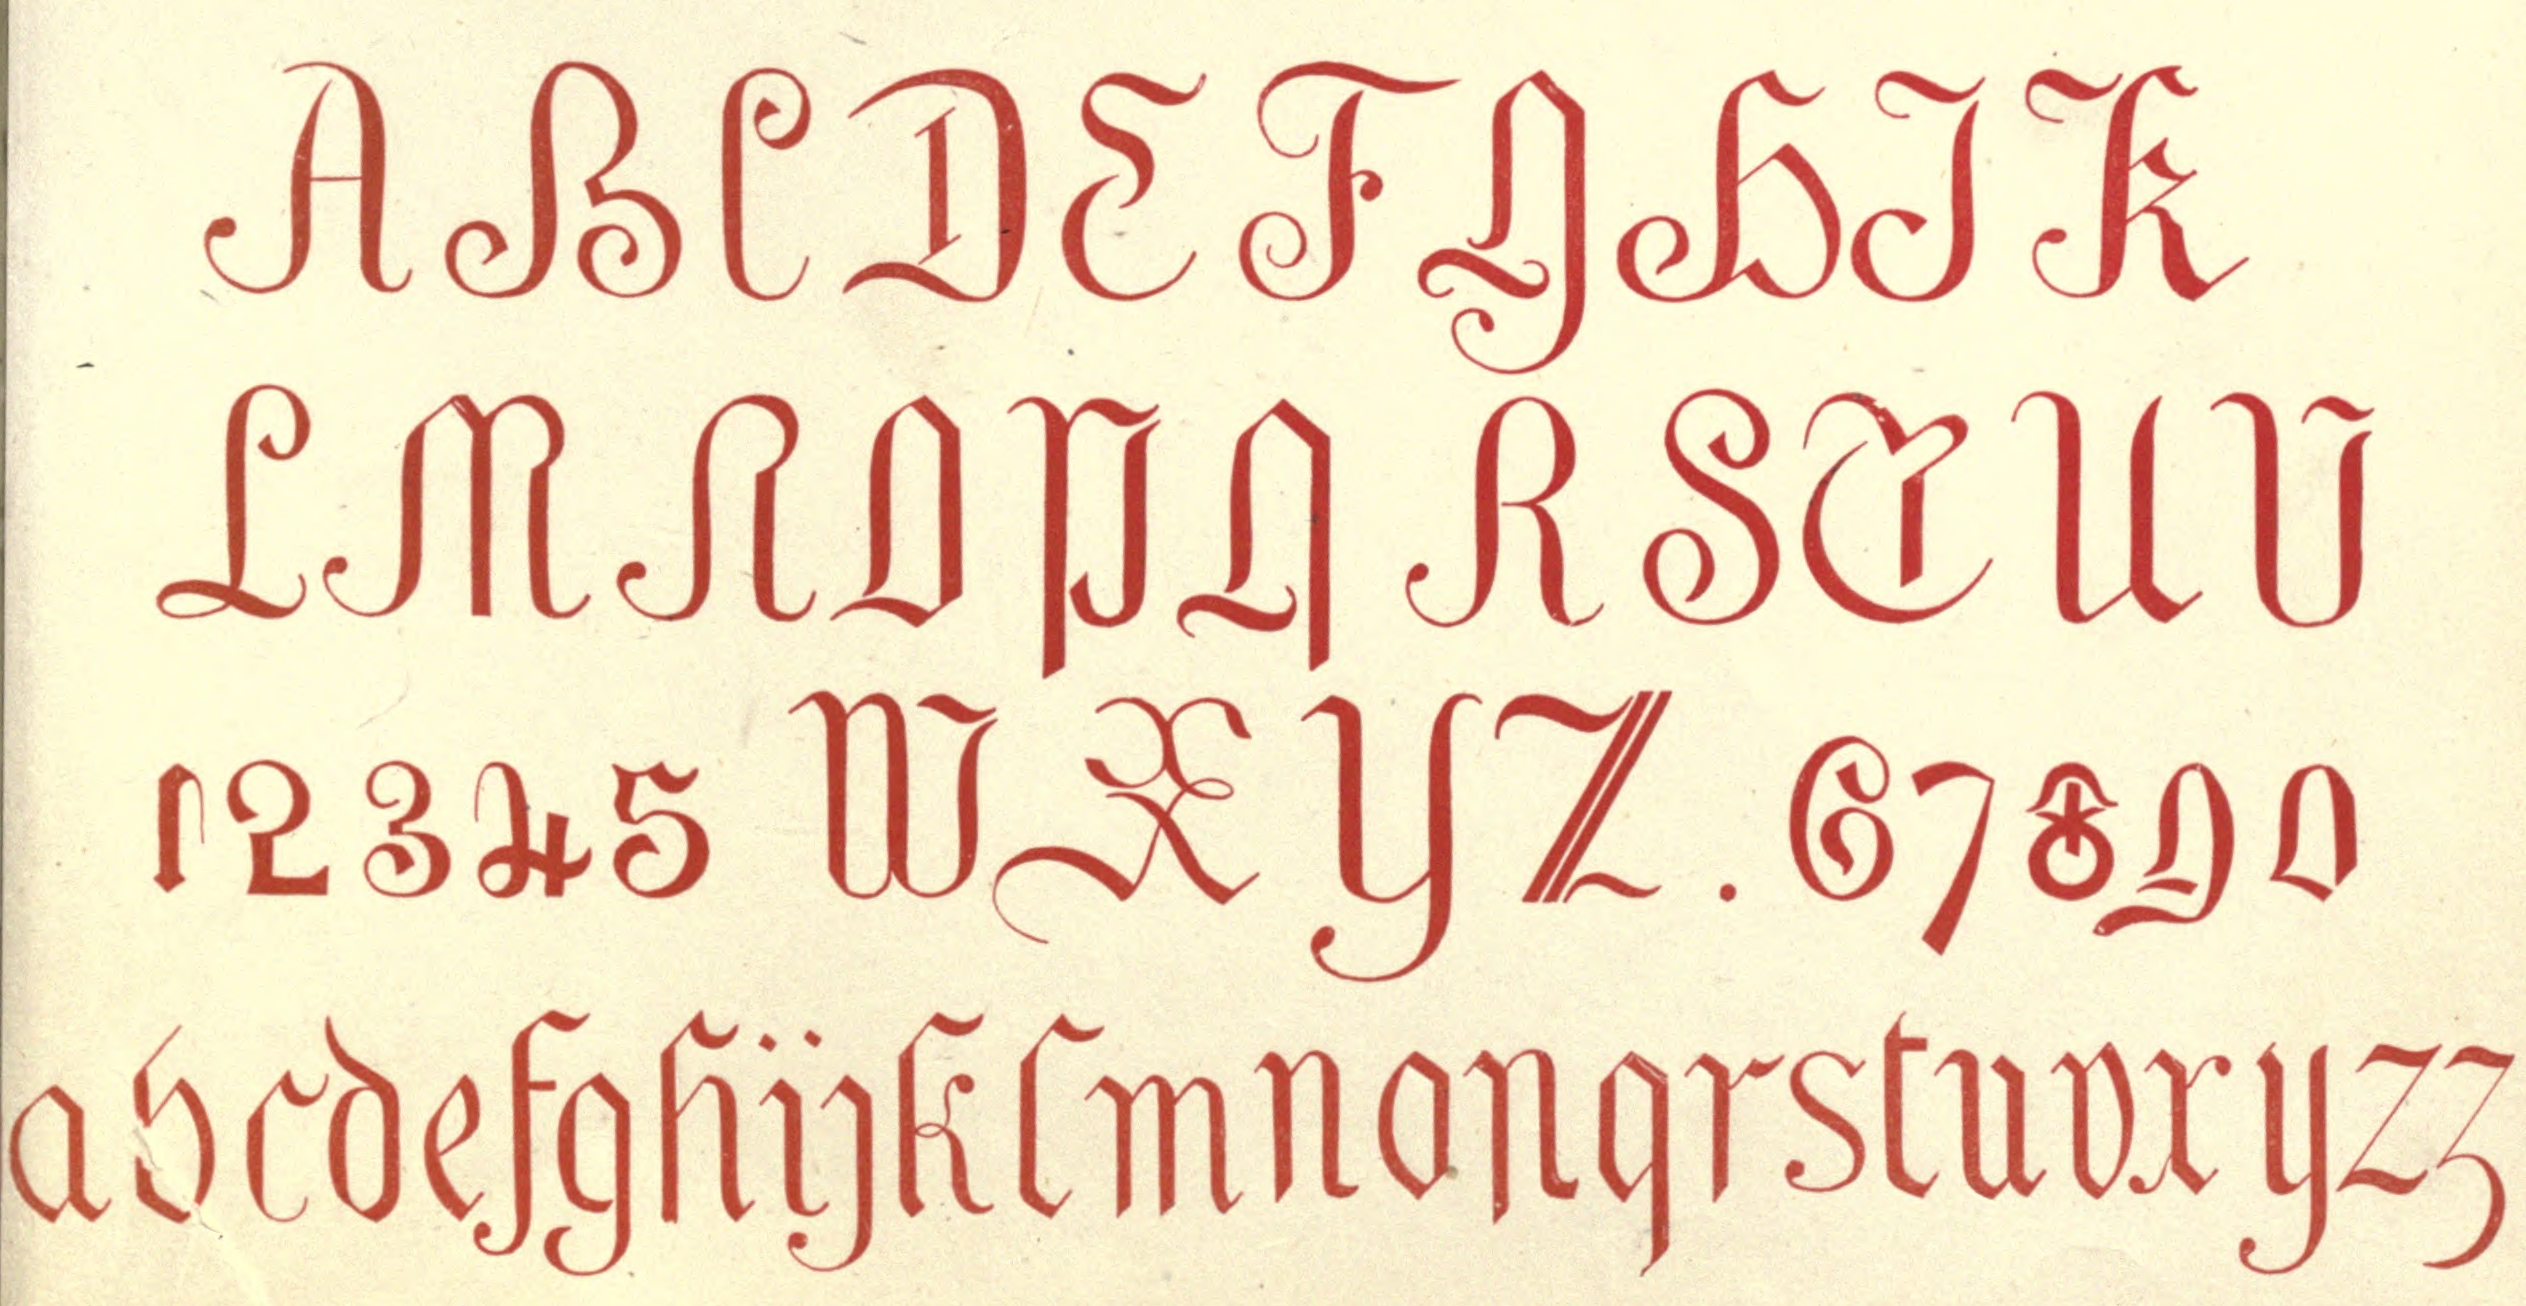 A B C D E F G H I K
L M N O P Q R S T U V
1 2 3 4 5 W X Y Z . 6 7 8 9 0
a b c d e f g h i j k l m n o p q r s t u v x y z z